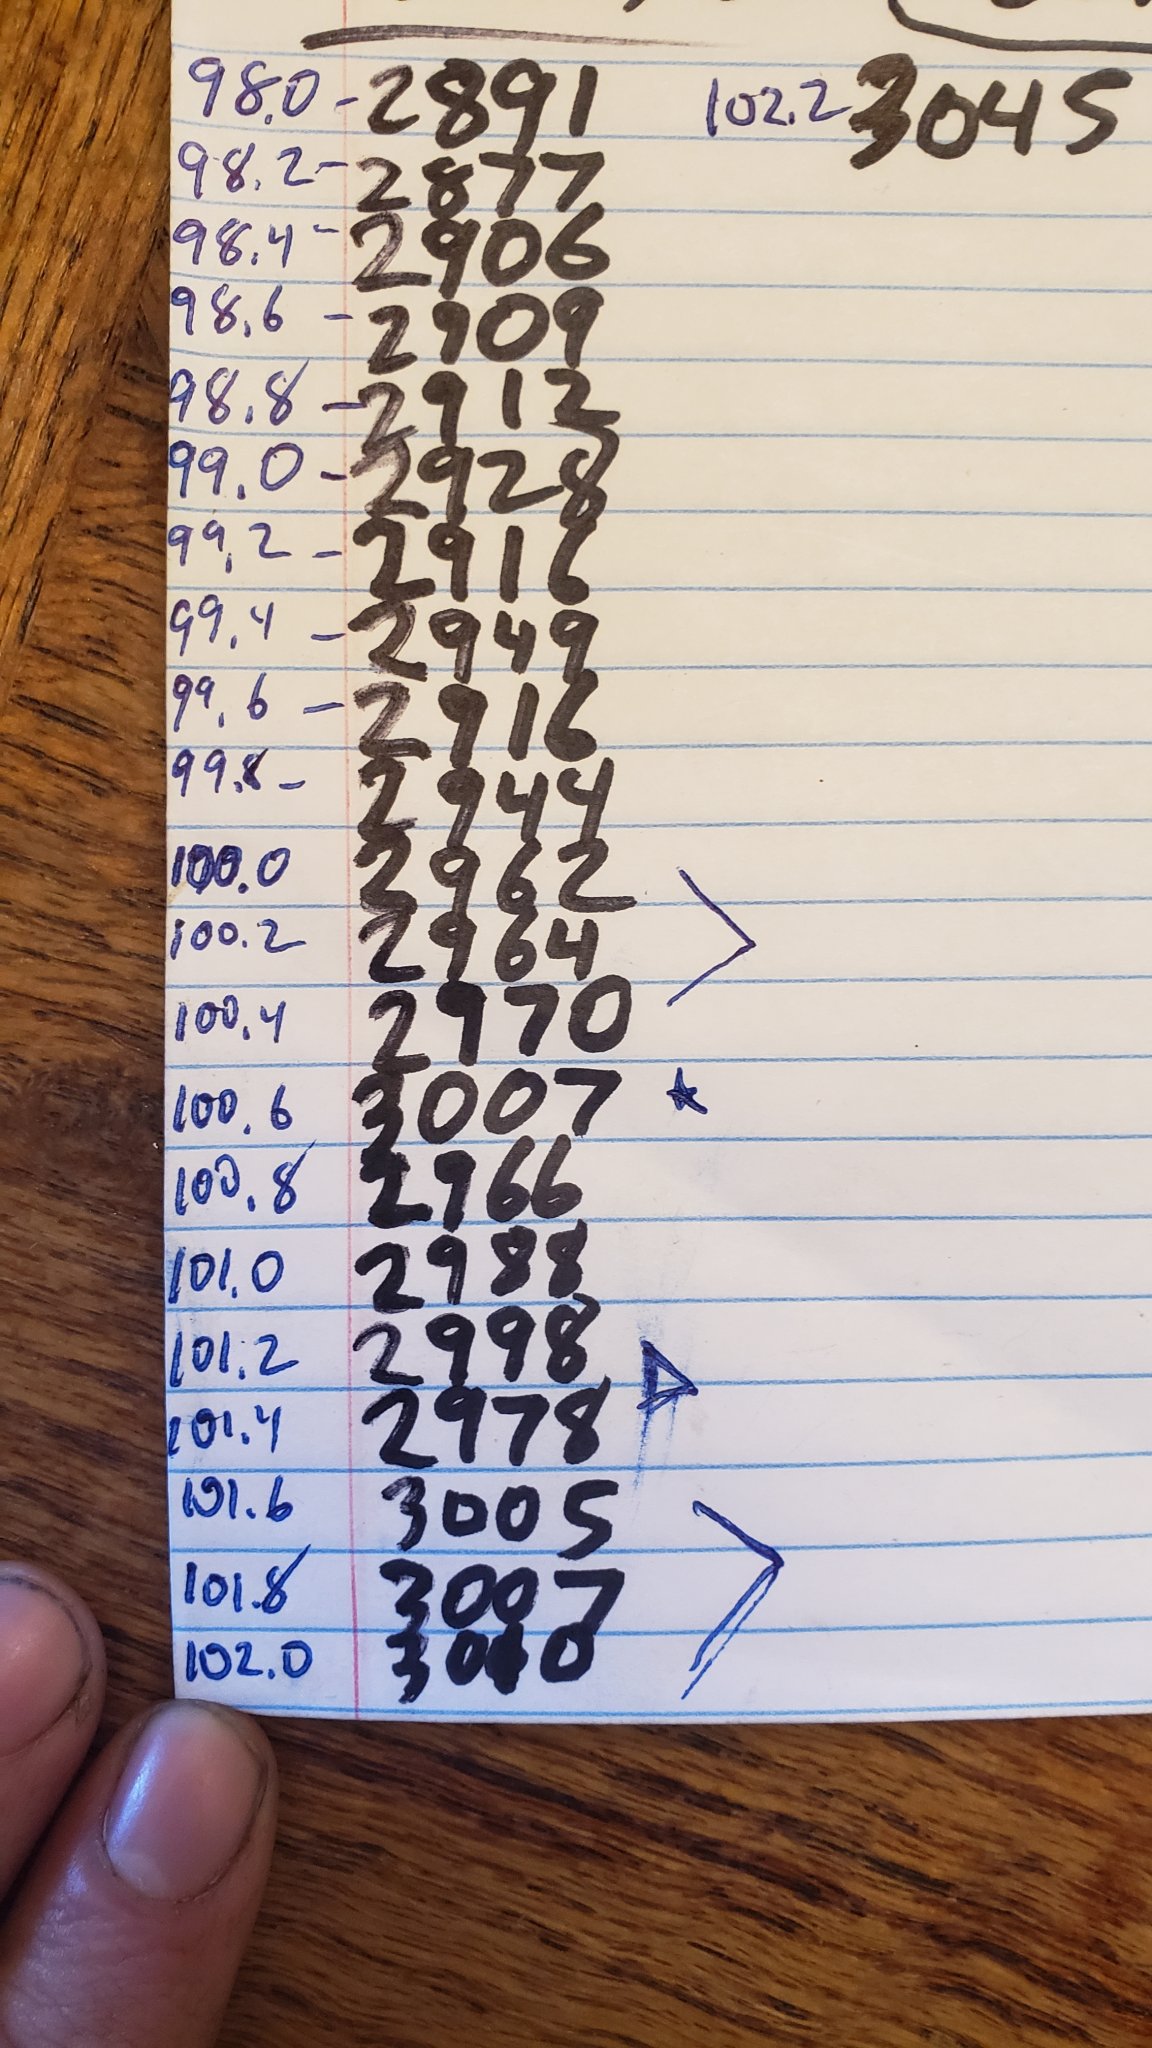 98.0 - 2891
98.2 - 2877
98.4 - 2906
98.6 - 2909
98.8 - 2912
99.0 - 2928
99.2 - 2916
99.4 - 2949
99.6 - 2916
99.8 - 2944
100.0 2962
100.2 2964
100.4 2970
100.6 3007 ★
100.8 2966
101.0 2988
101.2 2998
101.4 2978
101.6 3005
101.8 3007
102.0 3010
102.2 3045